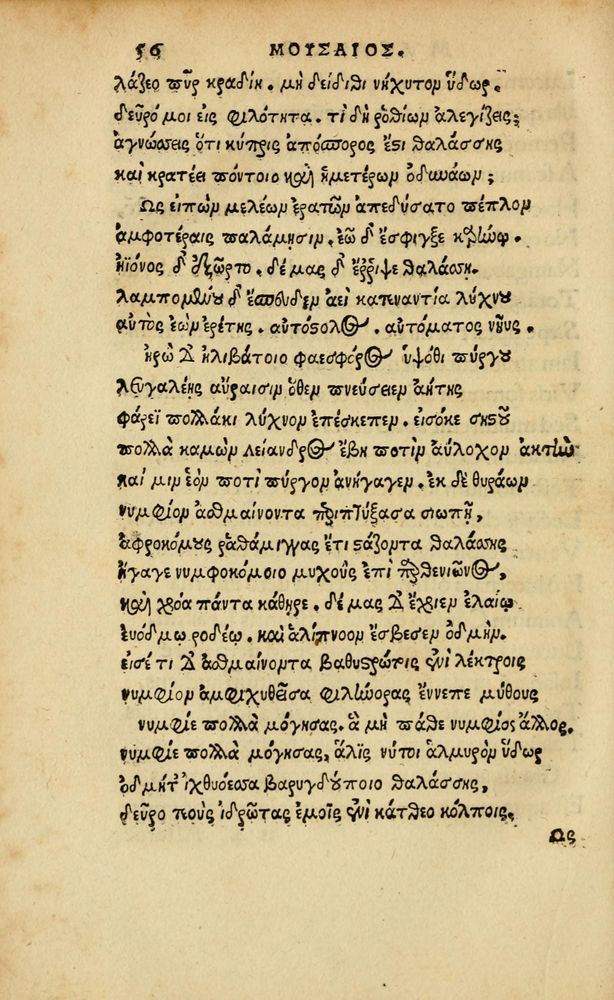 56 ΜΟΥΣΑΙΟΣ.
λάζεο πῦρ κραδίη. μὴ δείδιθι νήχυτον ὕδωρ.
δεῦρό μοι εἰς φιλότητα. τί δὴ ῥοθίων ἀλεγίζεις;
ἀγνώσσεις ὅτι κύπρις ἀπόσπορος ἔστι θαλάσσης
καὶ κρατέει πόντοιο καὶ ἡμετέρων ὀδυνάων;
Ως εἰπὼν μελέων ἐρατῶν ἀπεδύσατο πέπλον
ἀμφοτέραις παλάμῃσιν, ἑῷ δ' ἔσφιγξε καρήνῳ.
ἠϊόνος δ' ἐξῶρτο. δέμας δ' ἔῤῥιψε θαλάσσῃ.
λαμπομένου δ' ἔσπευδεν ἀεὶ κατεναντία λύχνου
αὐτὸς ἐὼν ἐρέτης. αὐτόστολος. αὐτόματος νηῦς.
ἡρὼ δ' ἠλιβάτοιο φαεσφόρος ὑψόθι πύργου
λευγαλέης αὔραισιν ὅθεν πνεύσειεν ἀήτης
φάρεϊ πολλάκι λύχνον ἐπέσκεπεν. εἰσόκε σηστοῦ
πολλὰ καμὼν λείανδρος ἔβη ποτὶν αὔλοχον ἀκτὴν
καί μιν ἑὸν ποτὶ πύργον ἀνήγαγεν. ἐκ δὲ θυράων
νυμφίον ἀσθμαίνοντα περιπτύξασα σιωπῇ,
ἀφροκόμους ῥαθάμιγγας ἔτι στάζοντα θαλάσσης
ἤγαγε νυμφοκόμοιο μυχοὺς ἐπὶ παρθενιῶνος,
καὶ χρόα πάντα κάθηρε. δέμας δ' ἔχριεν ἐλαίῳ
εὐόδμῳ ῥοδέῳ. καὶ ἁλίπνοον ἔσβεσεν ὀδμήν.
εἰσέτι δ' ἀσθμαίνοντα βαθυστρώτοις ἐνὶ λέκτροις
νυμφίον ἀμφιχυθεῖσα φιλήνορας ἔννεπε μύθους
νυμφίε πολλὰ μόγησας. ἃ μὴ πάθε νυμφίος ἄλλος.
νυμφίε πολλὰ μόγησας, ἅλις νύτοι ἁλμυρὸν ὕδωρ
ὀδμήτ' ἰχθυόεσσα βαρυγδούποιο θαλάσσης,
δεῦρο τεοὺς ἱδρῶτας ἐμοῖς ἐνὶ κάτθεο κόλποις.
Ως